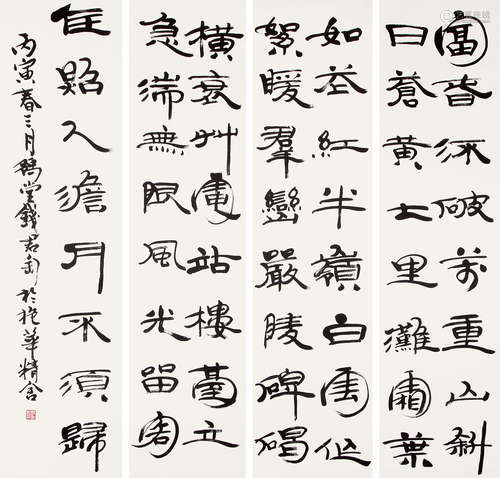 富春江破萬重山斜
日蒼黃七里灘霜葉
如花紅半嶺白雲似
絮暖羣巒嚴陵碑碣
橫衰艸庵站樓臺立
急湍無限風光留客
住照人澹月不須歸
丙寅春三月豫堂錢君匋於抱華精舍